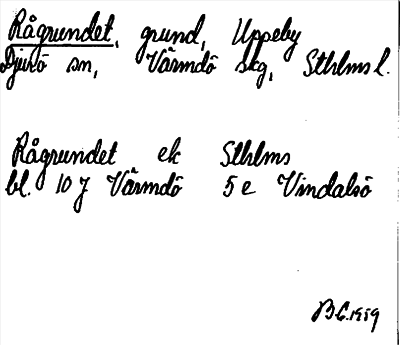 Rågrundet, grund, Uppeby
Djurö sn, Värmdö skg, Sthlms l.
Rågrundet ek Sthlms
bl. 10 J Värmdö 5 e Vindalsö
B.G. 1959